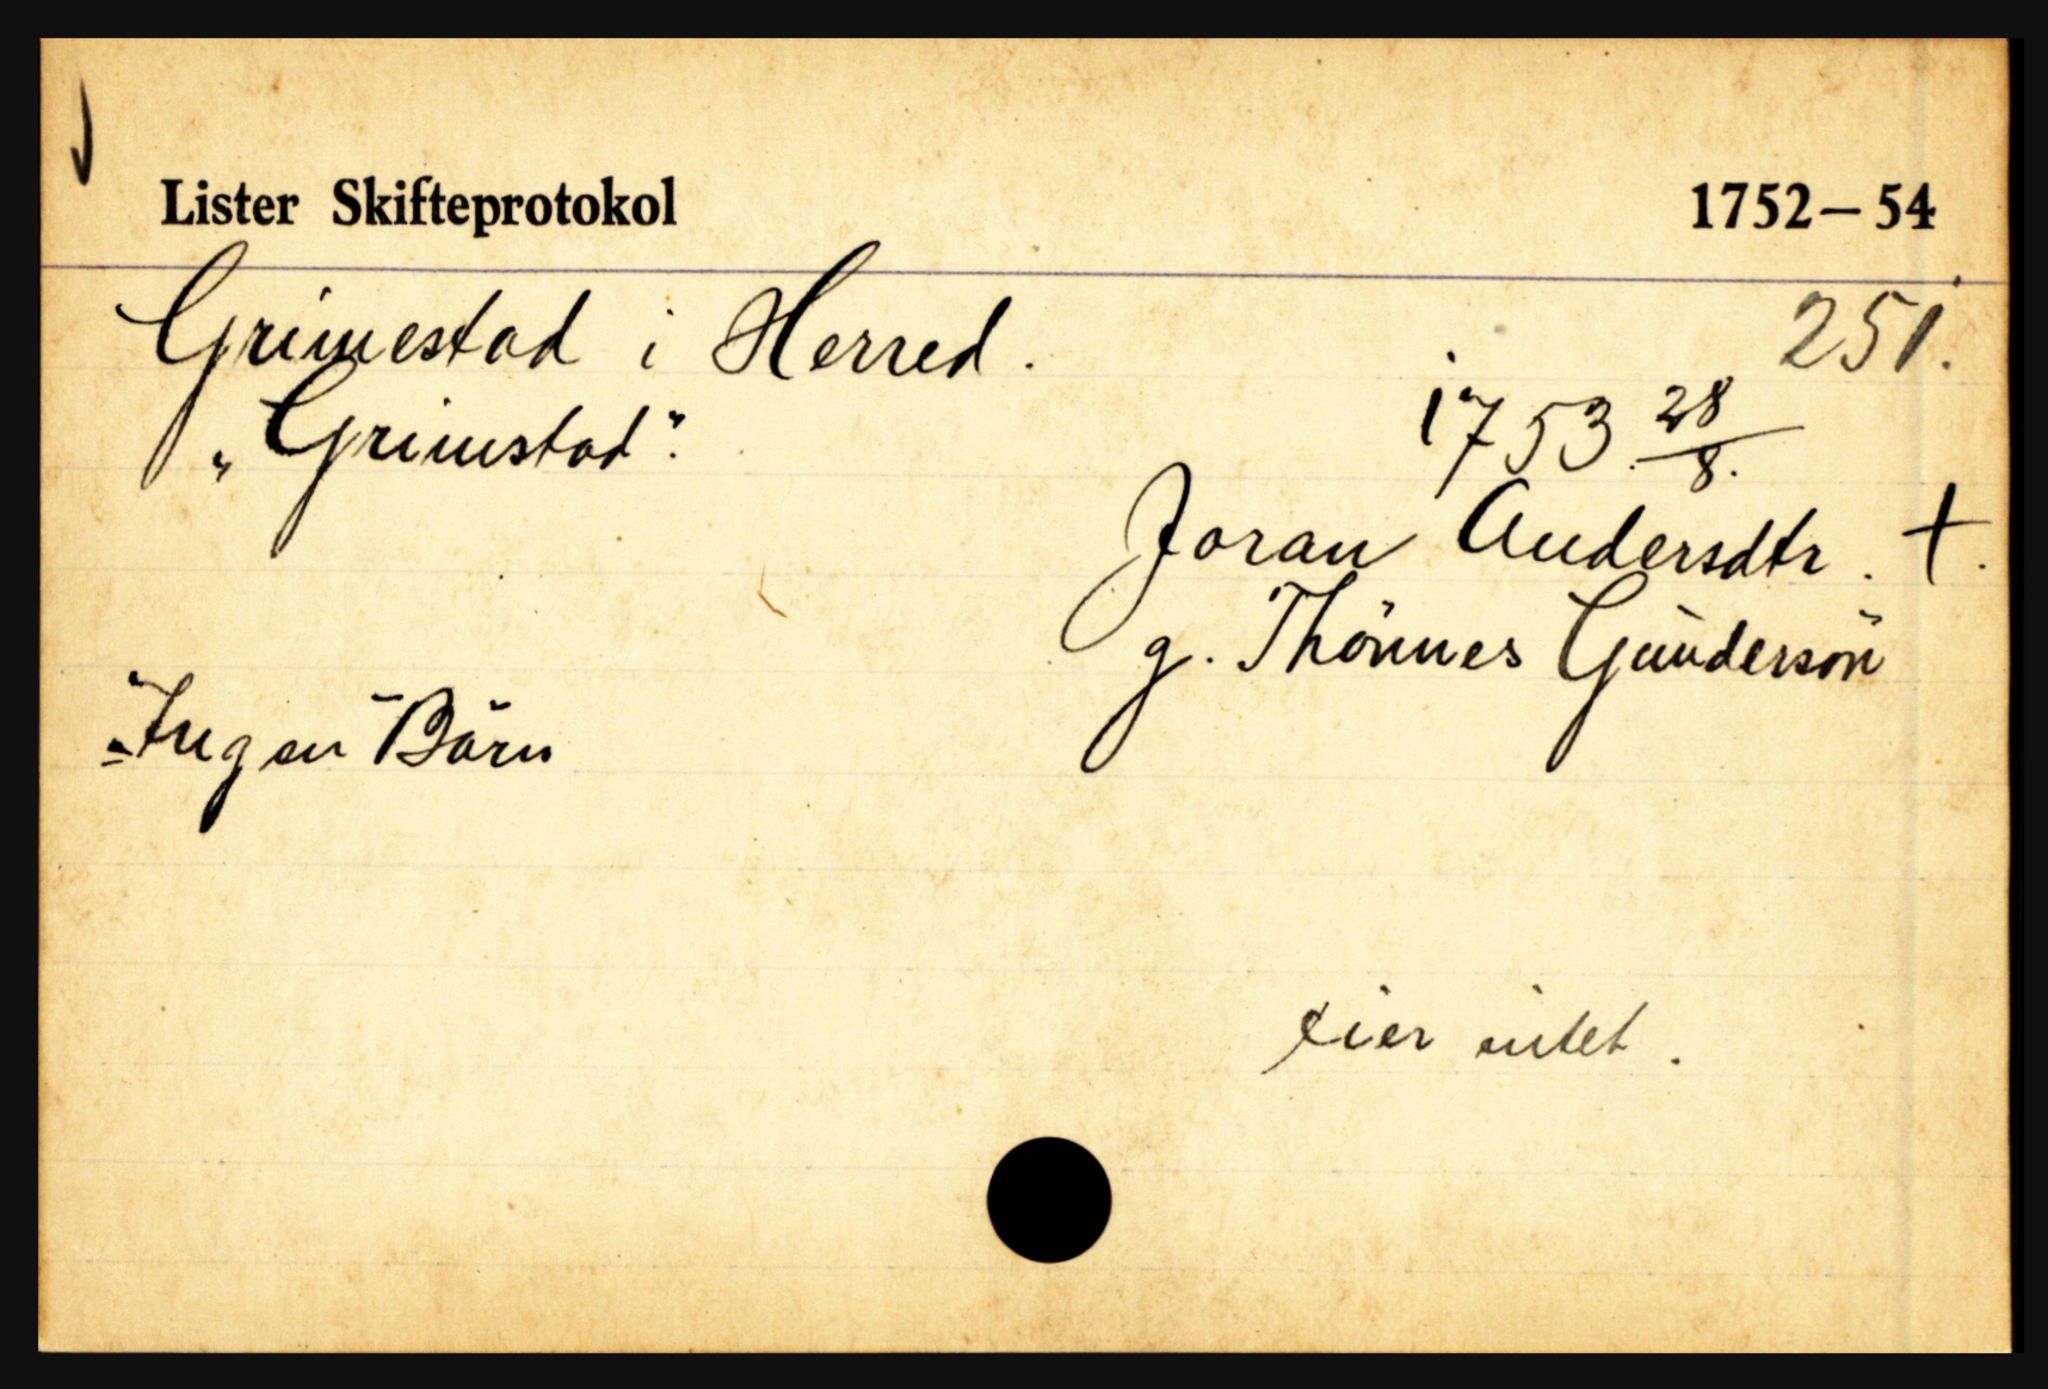 Lister Skifteprotokol 1752–54
Grimestad i Herred. 251.
„Grimstad".
1753 28/8.
Joran Andersdtr. †.
g. Thönnes Gundersön
Ingen Börn
eier intet.